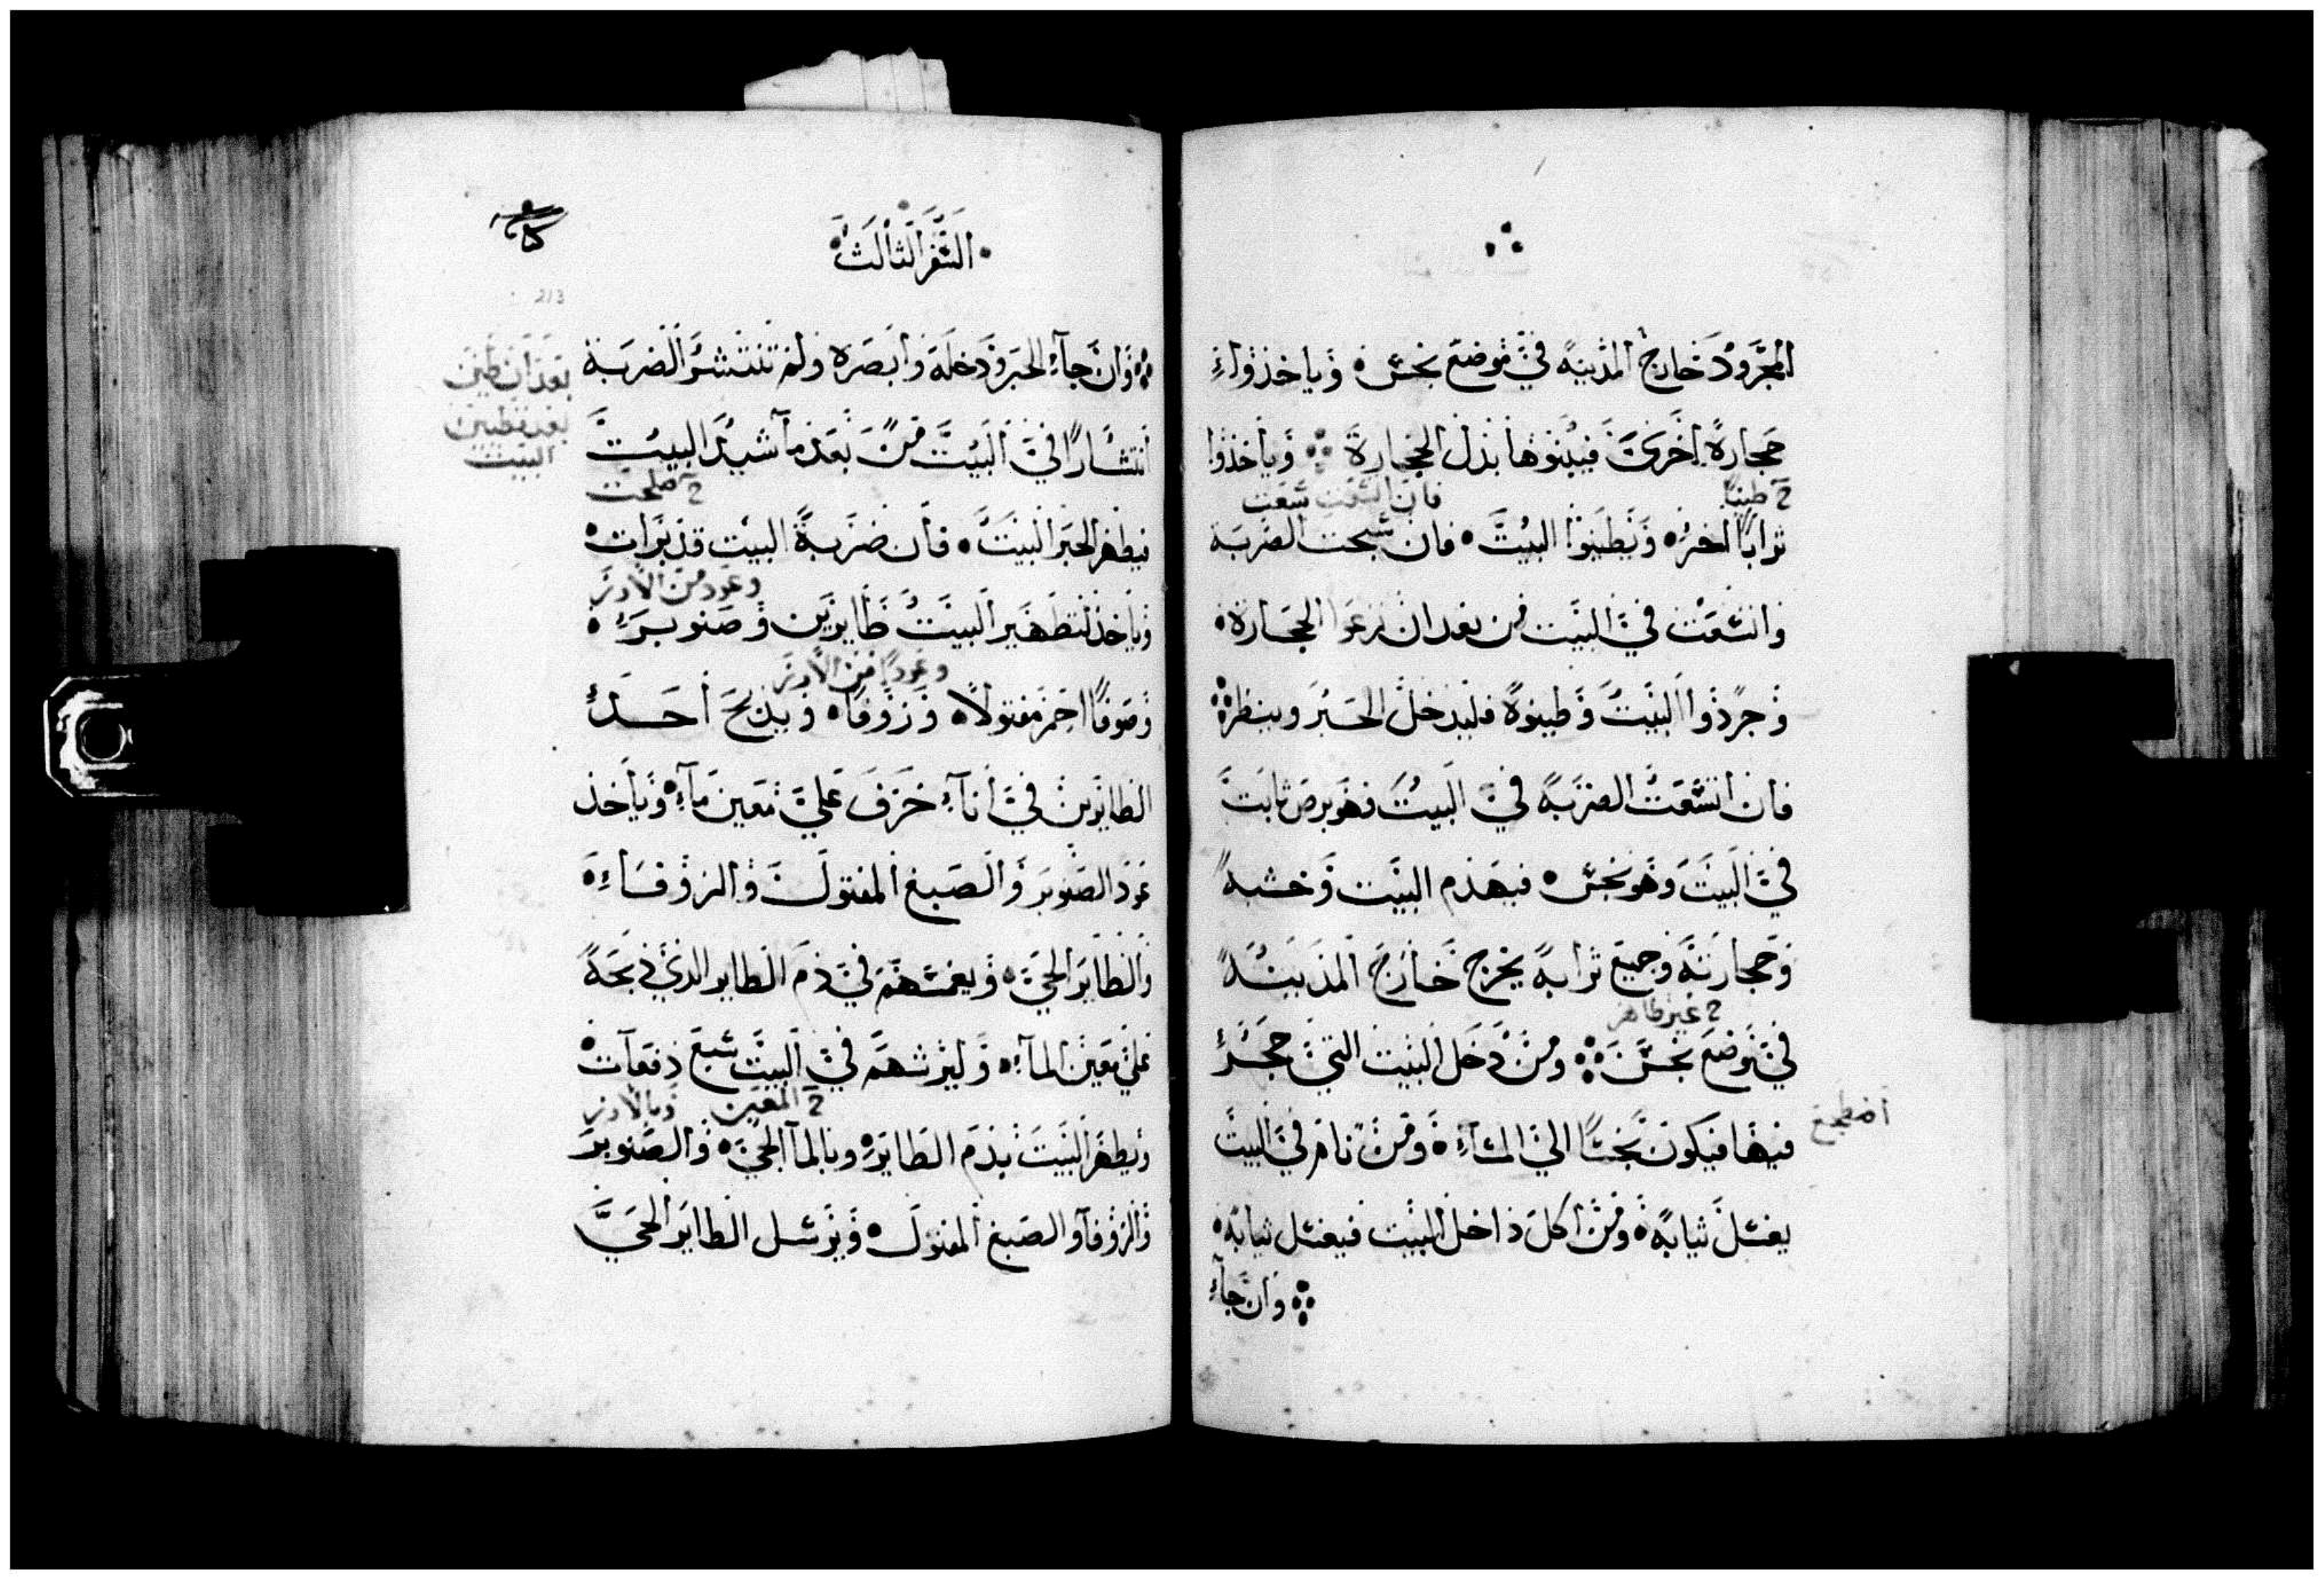 المجرود خارج المدينه في موضع نجس وياخذواء
حجارة اخرى فيبنوها بدل الحجارة وياخذوا
2 طينا
فان اتسعت سعت
ترابا اخر ويطينوا البيت فان سبحت الضربه
واتسعت في البيت من بعد ان نزعوا الحجارة
وجردوا البيت وطينوه فليدخل الحبر وينظر
فان اتسعت الضربه في البيت فهو برص ثابت
في البيت وهو نجس فيهدم البيت وخشبه
وحجارته وجميع ترابه يخرج خارج المدينه
2 غير طاهر
في موضع نجس ومن دخل البيت التي حجر
فيها فيكون نجسا الي المساء ومن نام في البيت
اضطجع
يغسل ثيابه ومن اكل داخل البيت فيغسل ثيابه
وان جاء
السفر الثالث
213
وان جاء الحبر ودخله وابصره ولم تنتشر الضربة
بعد ان طين
بعد تطيين
البيت
انتشارا في البيت من بعد ما شيد البيت
2 صلحت
فيطهر الحبر البيت فان ضربة البيت قد برات
وعود من الارز
وياخذ لتطهير البيت طايرين وصنوبر
وعودا من الارز
وصوفا احمر مفتولا وزوفا ويذبح احد
الطايرين في اناء خزف علي معين ماء وياخذ
عود الصنوبر والصبغ المفتول والزوفاء
والطاير الحي ويغمسهم في دم الطاير الذي ذبحه
علي معين الماء وليرشهم في البيت سبع دفعات
2 المعين وبالارز
ويطهر البيت بدم الطاير وبالما الحي والصنوبر
والزوفا والصبغ المفتول ويرسل الطاير الحي